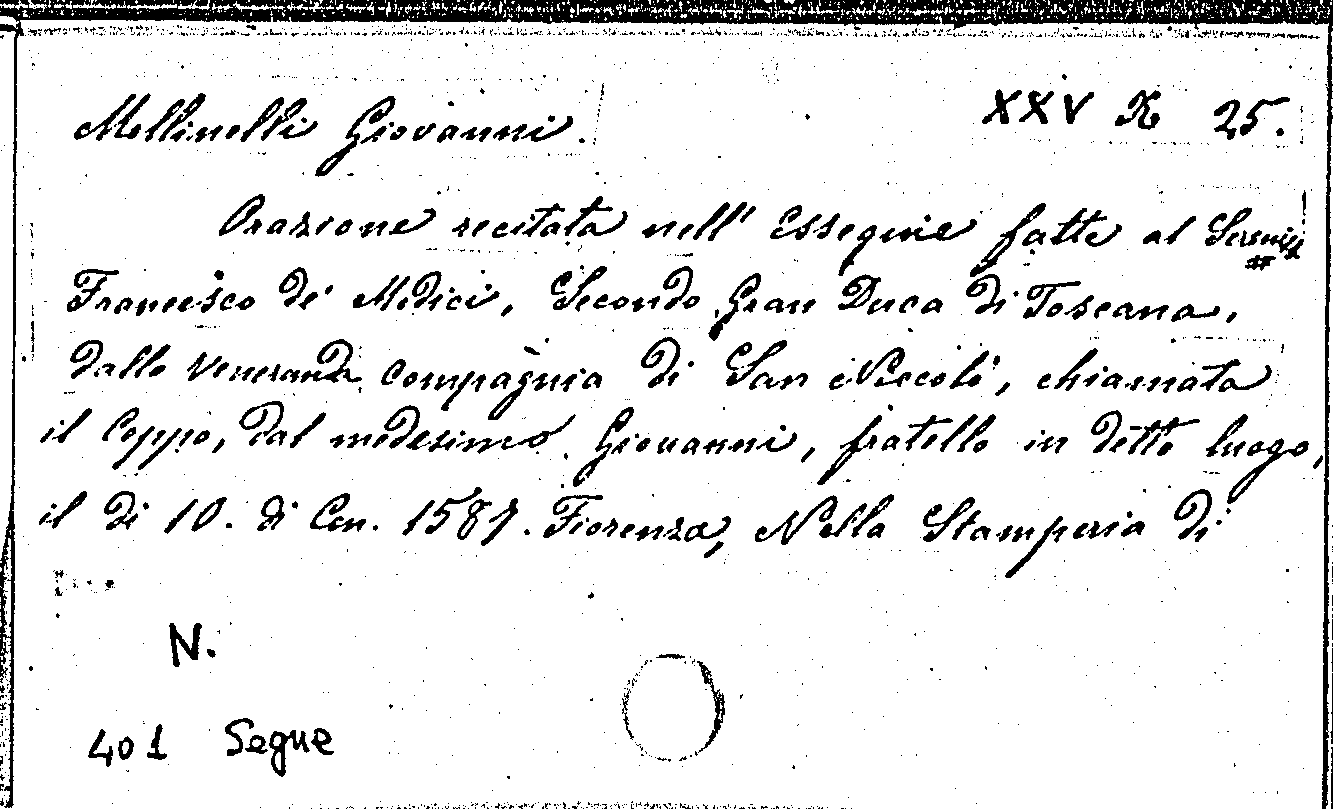 Mellinelli Giovanni. XXV K 25.
Orazione recitata nell' Essequie fatte al
Francesco de' Medici, Secondo Gran Duca di Toscana,
dalla Veneranda Compagnia di San Niccolò, chiamata
il Ceppo, dal medesimo Giovanni, fratello in detto luogo,
il di 10. di Gen. 1587. Fiorenza, Nella Stamperia di
N.
401 Segue